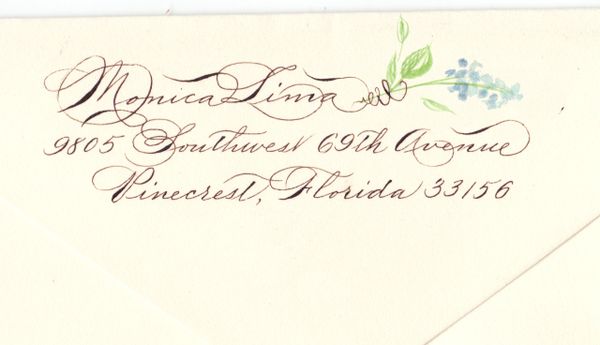 Monica Lima
9805 Southwest 69th Avenue
Pinecrest, Florida 33156